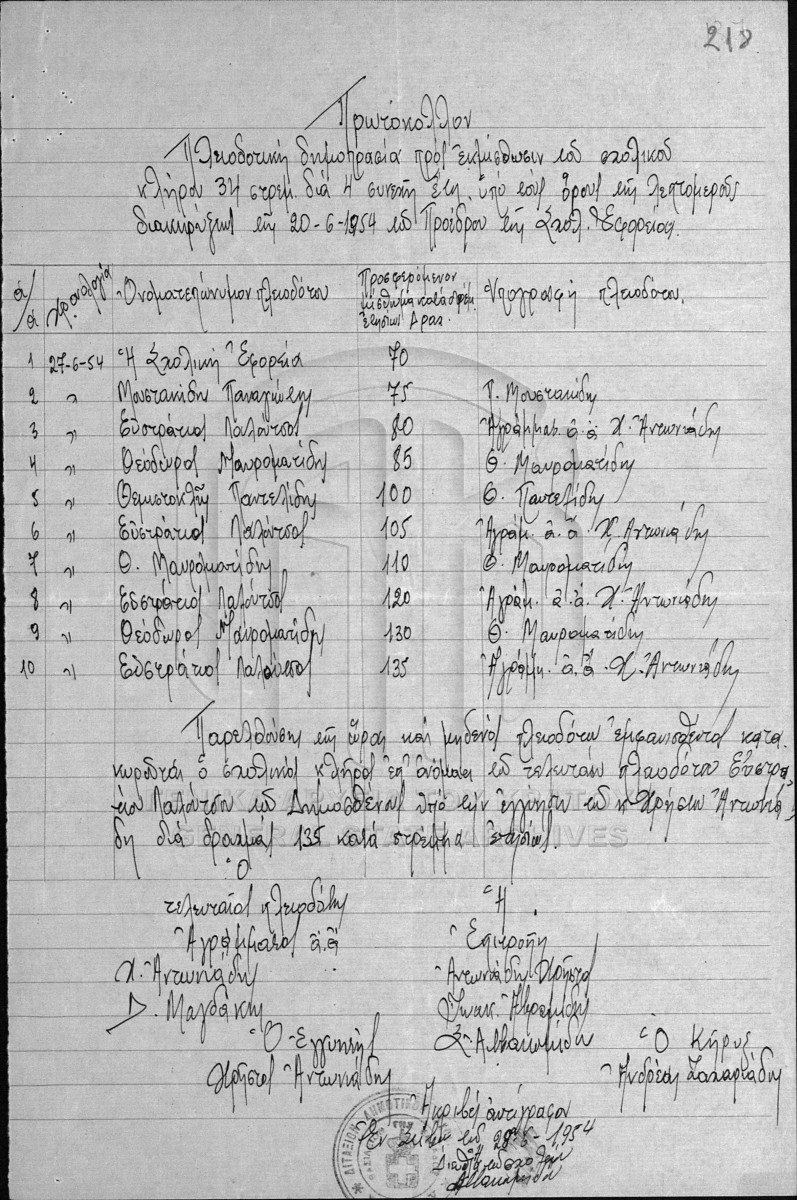 218
Πρωτόκολλον
Πλειοδοτική δημοπρασία πρός ἐκμίσθωσιν τοῦ σχολικοῦ
κλήρου 34 στρεμ. διά 4 συνεχῆ ἔτη ὑπό τούς ὅρους τῆς λεπτομεροῦς
διακηρύξεως τῆς 20-6-1954 τοῦ Προέδρου τῆς Σχολ. Ἐφορείας.
ά/ά Χρονολογία Ὀνοματεπώνυμον πλειοδότου Προσφερόμενον μίσθωμα κατά στρέμ. ἐτησίως Δραχ. Ὑπογραφή πλειοδότου.
1 27-6-54 Ἡ Σχολική Ἐφορεία 70
2 〃 Μουστακίδης Παναγιώτης 75 Π. Μουστακίδης
3 〃 Εὐστράτιος Λαλούτσος 80 Ἀγράμματ. ἀ.ἀ Χ. Ἀντωνιάδης
4 〃 Θεόδωρος Μαυροματίδης 85 Θ. Μαυροματίδης
5 〃 Θεμιστοκλῆς Παντελίδης 100 Θ. Παντελίδης
6 〃 Εὐστράτιος Λαλούτσος 105 Ἀγράμ. ἀ.ἀ. Χ. Ἀντωνιάδης
7 〃 Θ. Μαυροματίδης 110 Θ. Μαυροματίδης
8 〃 Εὐστράτιος Λαλούτσος 120 Ἀγράμ. ἀ.ἀ. Χ. Ἀντωνιάδης
9 〃 Θεόδωρος Μαυροματίδης 130 Θ. Μαυροματίδης
10 〃 Εὐστράτιος Λαλούτσος 135 Ἀγράμ. ἀ.ἀ. Χ. Ἀντωνιάδης
Παρελθούσης τῆς ὥρας καί μηδενός πλειοδότου ἐμφανισθέντος κατα
κυροῦται ὁ σχολικός κλῆρος ἐπ' ὀνόματι τοῦ τελευταίου πλειοδότου Εὐστρα
τίου Λαλούτσου τοῦ Δημοσθένους ὑπό τήν ἐγγύησιν τοῦ κ Χρήστου Ἀντωνιά
δη διά δραχμάς 135 κατά στρέμμα ἐτησίως.
GENERAL STATE ARCHIVES
Ὁ
τελευταῖος πλειοδότης
Ἀγράμματος ἀ.ἀ
Χ. Ἀντωνιάδης
Δ. Μαγδάκης
Ἡ
Ἐπιτροπή
Ἀντωνιάδης Χρῆστος
Σ. Ἀββακουμίδης
Ὁ Ἐγγυητής
Χρῆστος Ἀντωνιάδης
Ὁ Κήρυξ
Ἀνδρέας Ζαχαριάδης
Ἀκριβές ἀντίγραφον
Ἐν τῇ 28-6-1954